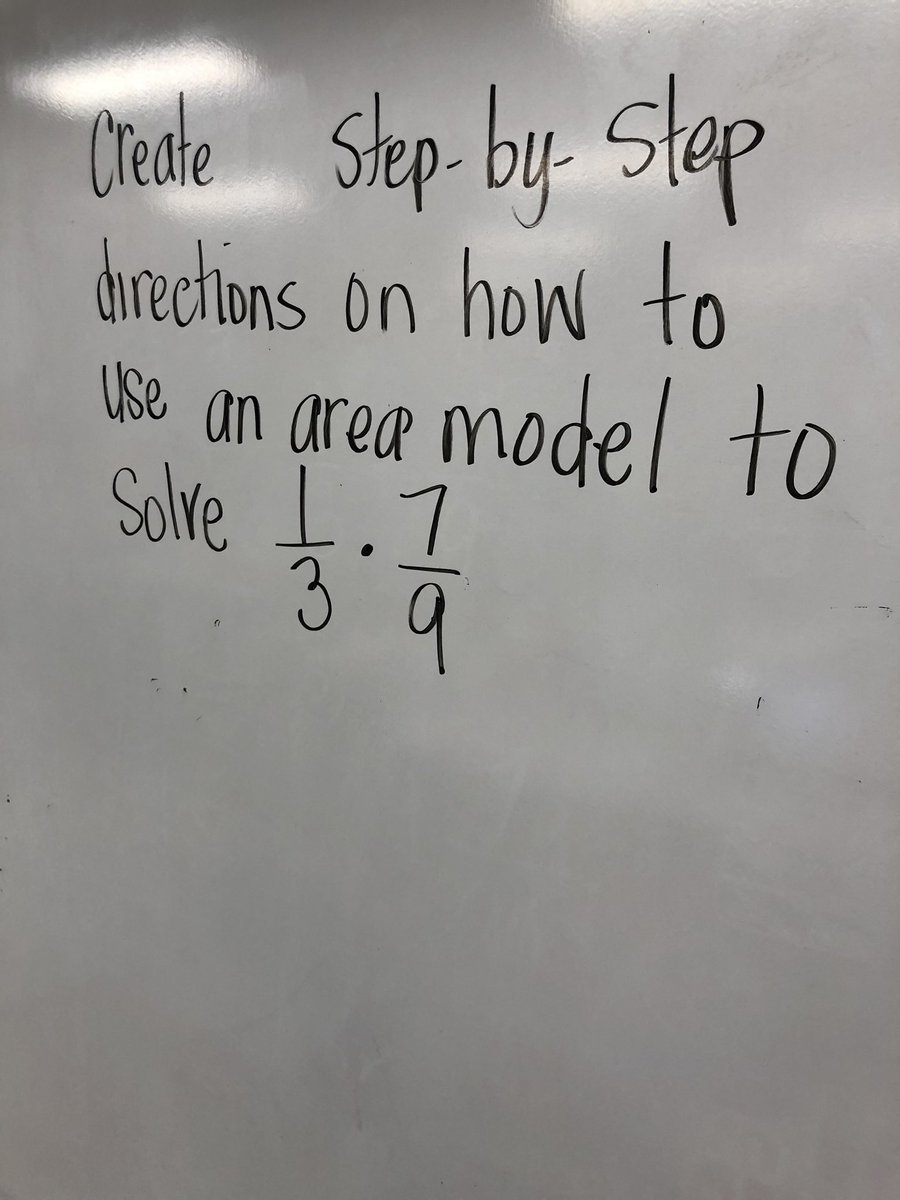 Create Step-by-Step
directions on how to
use an area model to
Solve 1/3 · 7/9